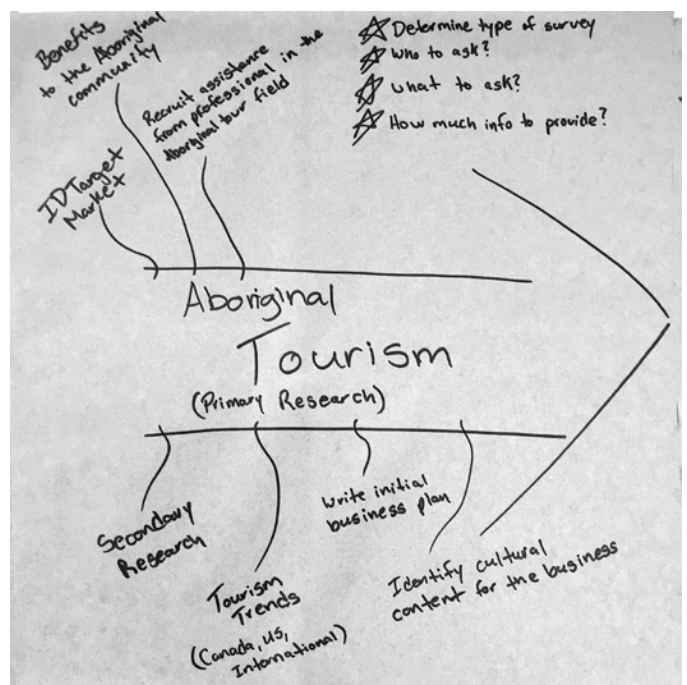 Benefits
to the Aboriginal
community
Recruit assistance
from professional in the
Aboriginal tour field
ID Target
Market
Determine type of survey
Who to ask?
What to ask?
How much info to provide?
Aboriginal
Tourism
(Primary Research)
Secondary
Research
Tourism
Trends
(Canada, US,
International)
Write initial
business plan
Identify cultural
content for the business